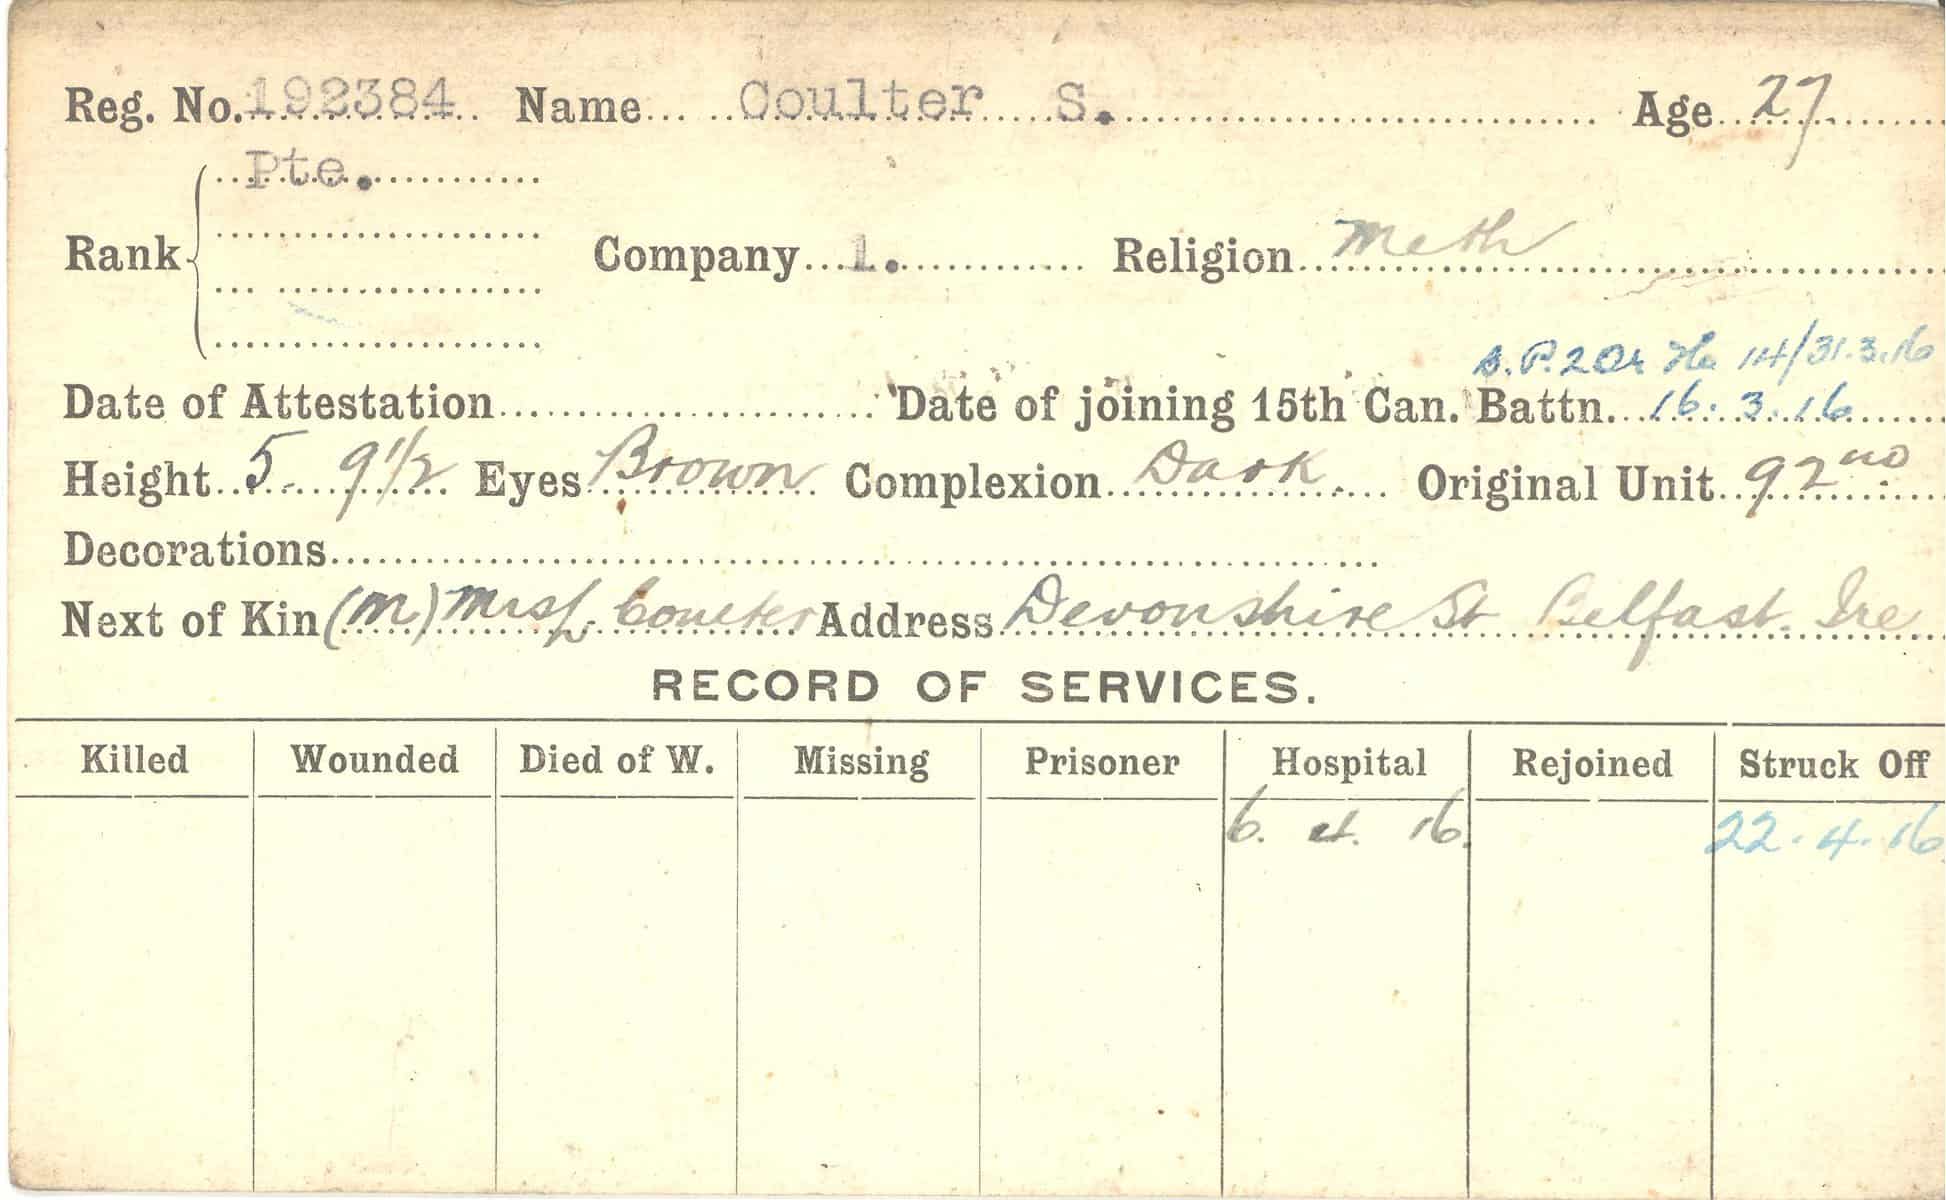 Reg. No. 192384 Name Coulter S. Age 27
Pte.
Rank Company 1. Religion Meth
14/31.3.16
Date of Attestation Date of joining 15th Can. Battn. 16.3.16
Height 5 9 1/2 Eyes Brown Complexion Dark Original Unit 92nd
Decorations
Next of Kin (M) Mrs Coulter Address Devonshire St Belfast. Ire
RECORD OF SERVICES.
Killed Wounded Died of W. Missing Prisoner Hospital Rejoined Struck Off
6. 4. 16. 22.4.16.